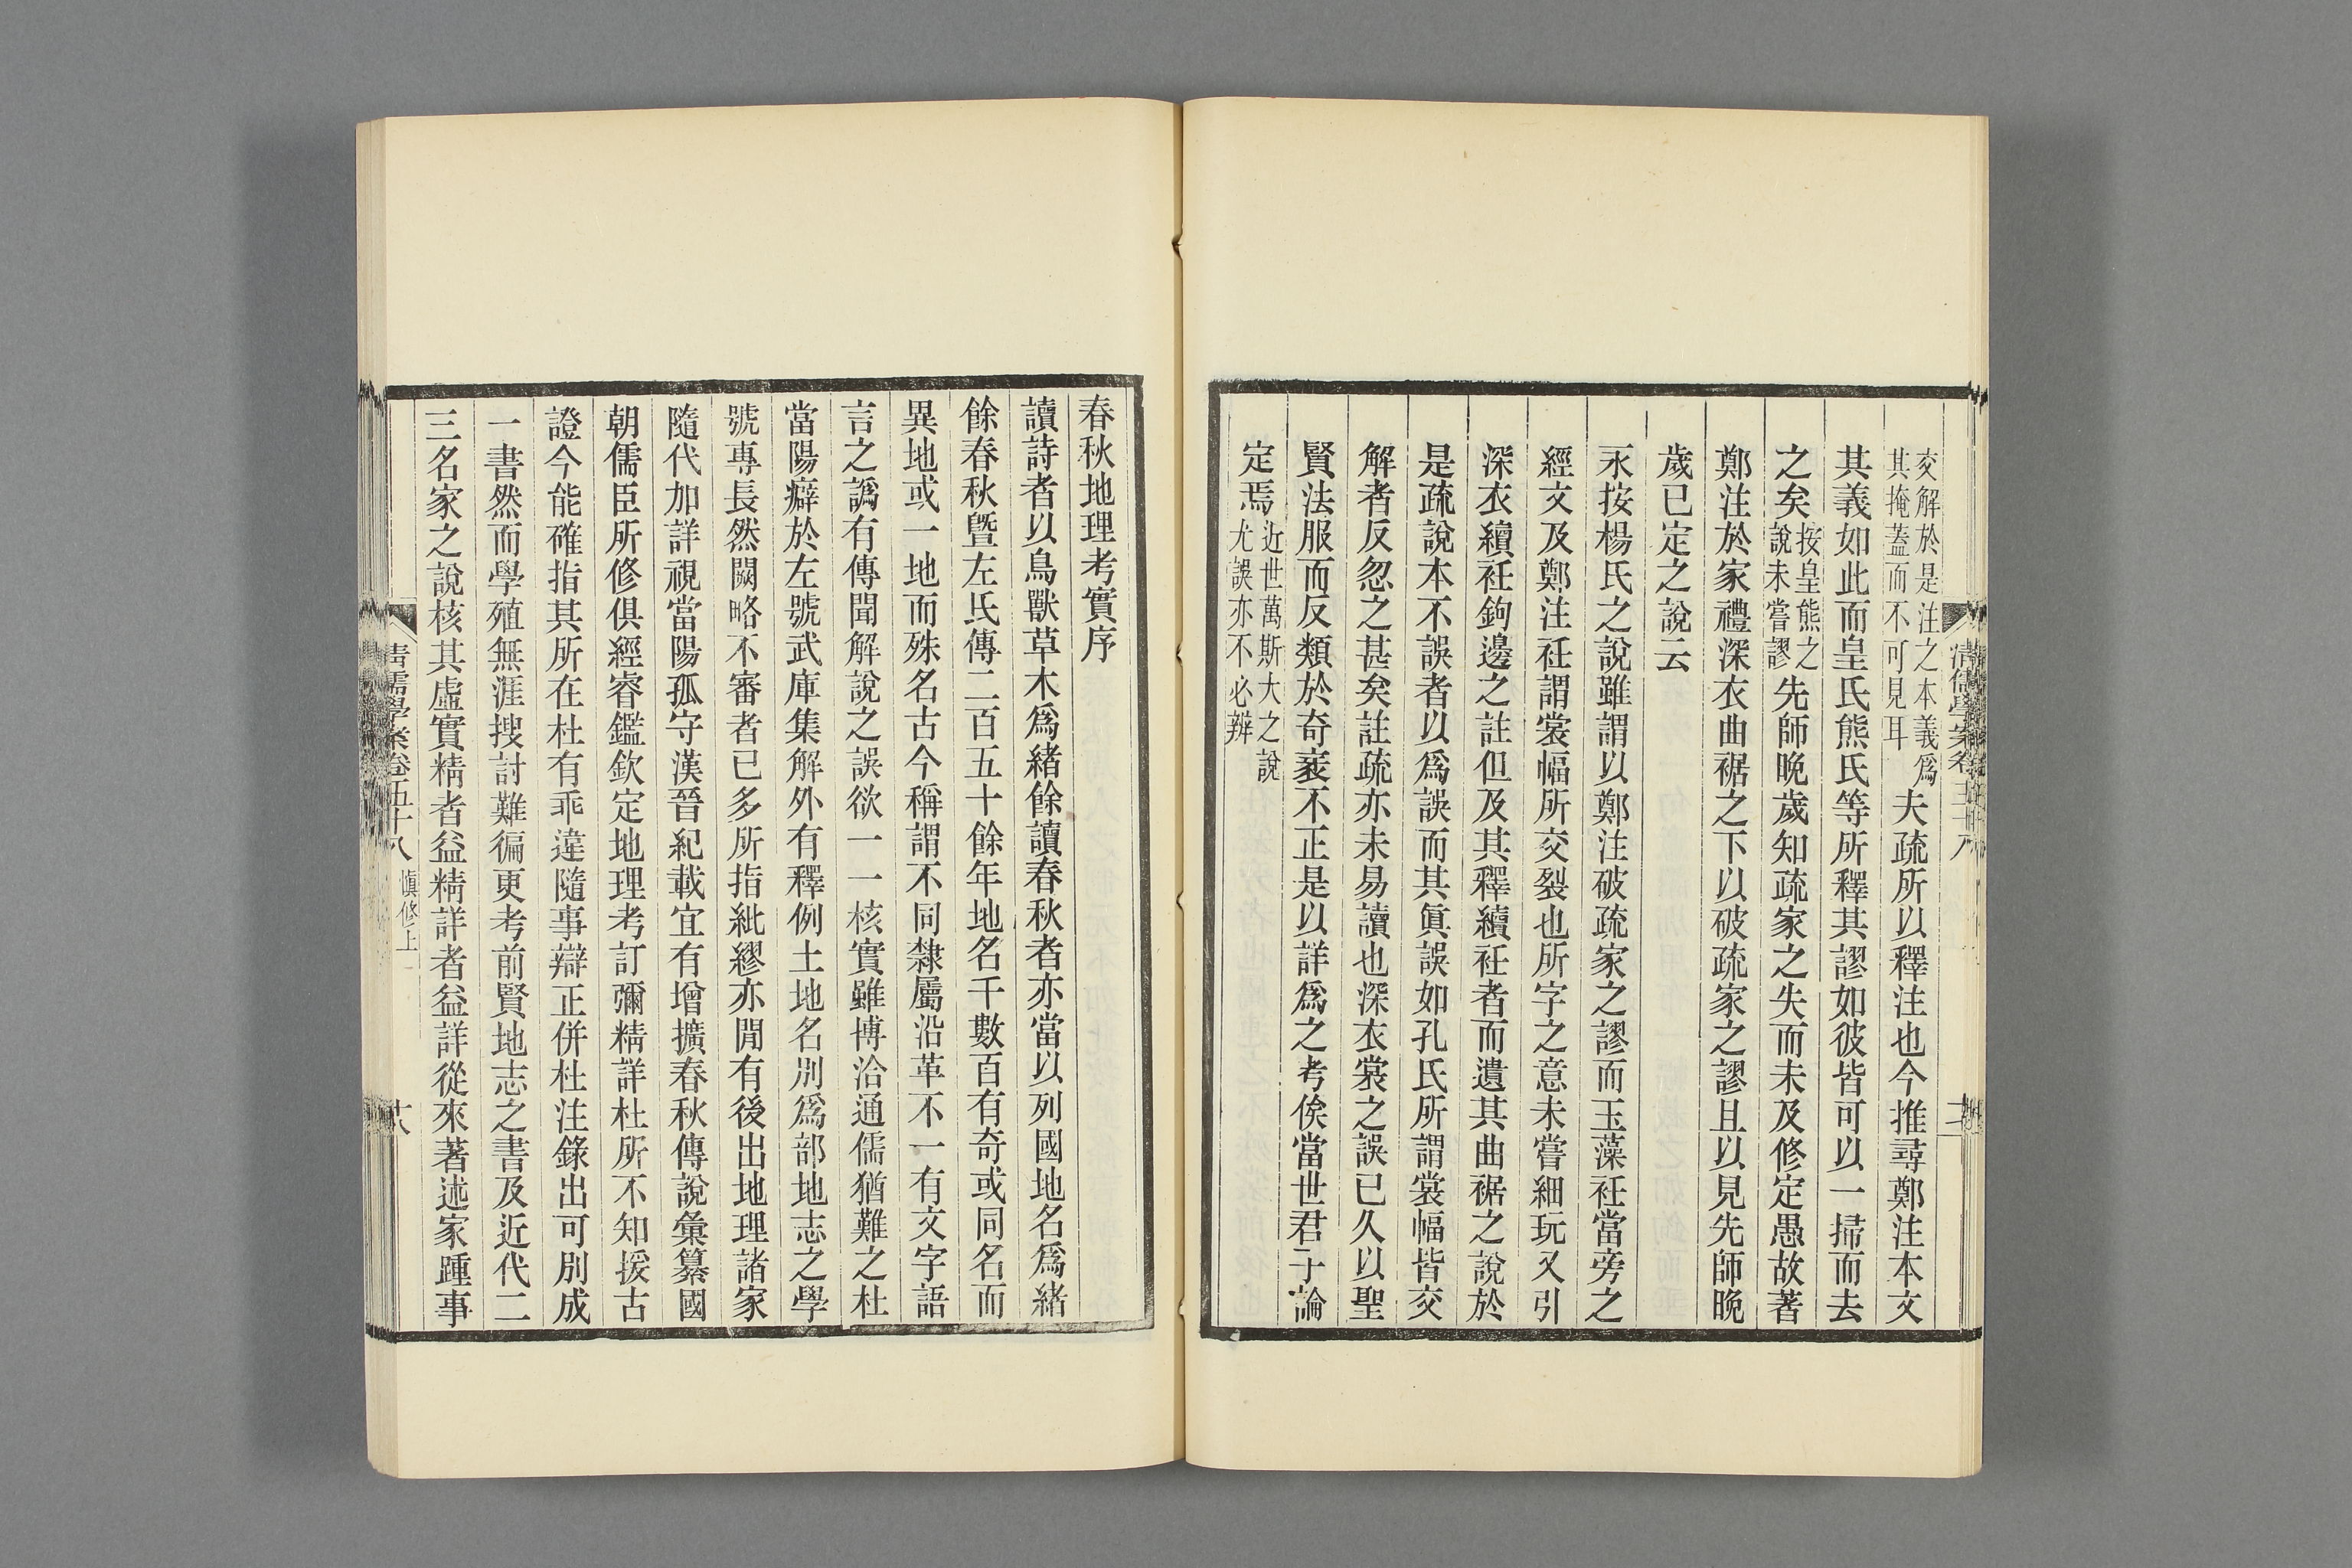 交解於是注之本義爲其掩蓋而不可見耳夫疏所以釋注也今推尋鄭注本文
其義如此而皇氏熊氏等所釋其謬如彼皆可以一掃而去
之矣按皇熊之說未嘗謬先師晚歲知疏家之失而未及修定愚故著
鄭注於家禮深衣曲裾之下以破疏家之謬且以見先師晚
歲已定之說云
永按楊氏之說雖謂以鄭注破疏家之謬而玉藻衽當旁之
經文及鄭注衽謂裳幅所交裂也所字之意未嘗細玩又引
深衣續衽鉤邊之註但及其釋續衽者而遺其曲裾之說於
是疏說本不誤者以爲誤而其眞誤如孔氏所謂裳幅皆交
解者反忽之甚矣註疏亦未易讀也深衣裳之誤已久以聖
賢法服而反類於奇衺不正是以詳爲之考俟當世君子論
定焉近世萬斯大之說尤誤亦不必辨
春秋地理考實序
讀詩者以鳥獸草木爲緒餘讀春秋者亦當以列國地名爲緒
餘春秋曁左氏傳二百五十餘年地名千數百有奇或同名而
異地或一地而殊名古今稱謂不同隸屬沿革不一有文字語
言之譌有傳聞解說之誤欲一一核實雖博洽通儒猶難之杜
當陽癖於左號武庫集解外有釋例土地名別爲部地志之學
號專長然闕略不審者已多所指紕繆亦閒有後出地理諸家
隨代加詳視當陽孤守漢晉紀載宜有增擴春秋傳說彙纂國
朝儒臣所修俱經睿鑑欽定地理考訂彌精詳杜所不知援古
證今能確指其所在杜有乖違隨事辯正併杜注錄出可別成
一書然而學殖無涯搜討難徧更考前賢地志之書及近代二
三名家之說核其虛實精者益精詳者益詳從來著述家踵事
清儒學案卷五十八 愼修上 十八